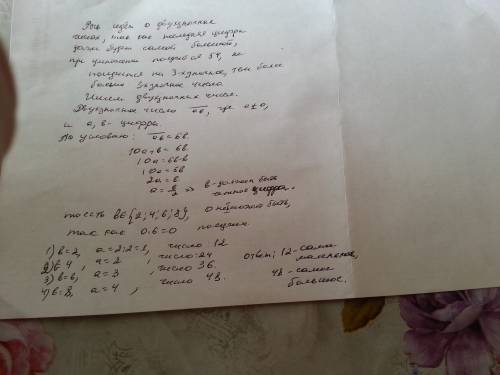 Речь идёт о двузначных
числах, так как последняя цифра
должна будет самой большой,
при умножении получится 54, не
получится на 3-хзначное, тем более
больше 3значные числа.
Ищем двузначные числа.
Двузначное число ab, где a≠0,
и a, b - цифры.
По условию: ab = 6b.
10a+b = 6b
10a = 6b-b
10a = 5b
2a = b
a = b/2 => b - должен быть
чётное цифра.
то есть b∈{2; 4; 6; 8}, 0 не может быть,
так как 0·6=0 получим.
1) b=2, a=2:2=1, число 12
2) b=4, a=2, число 24
3) b=6, a=3, число 36.
4) b=8, a=4, число 48.
ответ: 12 - самое
маленькое,
48 - самое
большое.